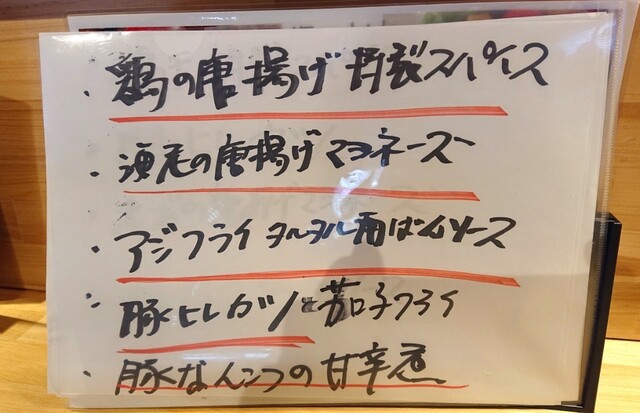 ・鶏の唐揚げ 特製スパイス
・海老の唐揚げマヨネーズ
・アジフライ タルタル
・豚ヒレカツと茄子フライ
・豚なんこつの甘辛煮